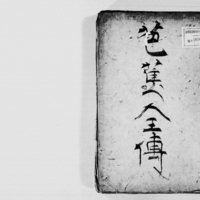 芭蕉入全傳